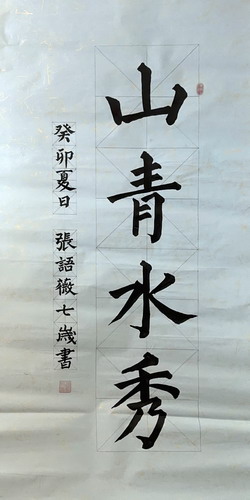 山青水秀
癸卯夏日 張語薇七歲書